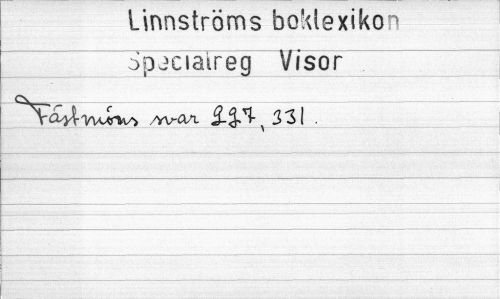 Linnströms boklexikon
Specialreg Visor
Fästmöns svar 227, 331.